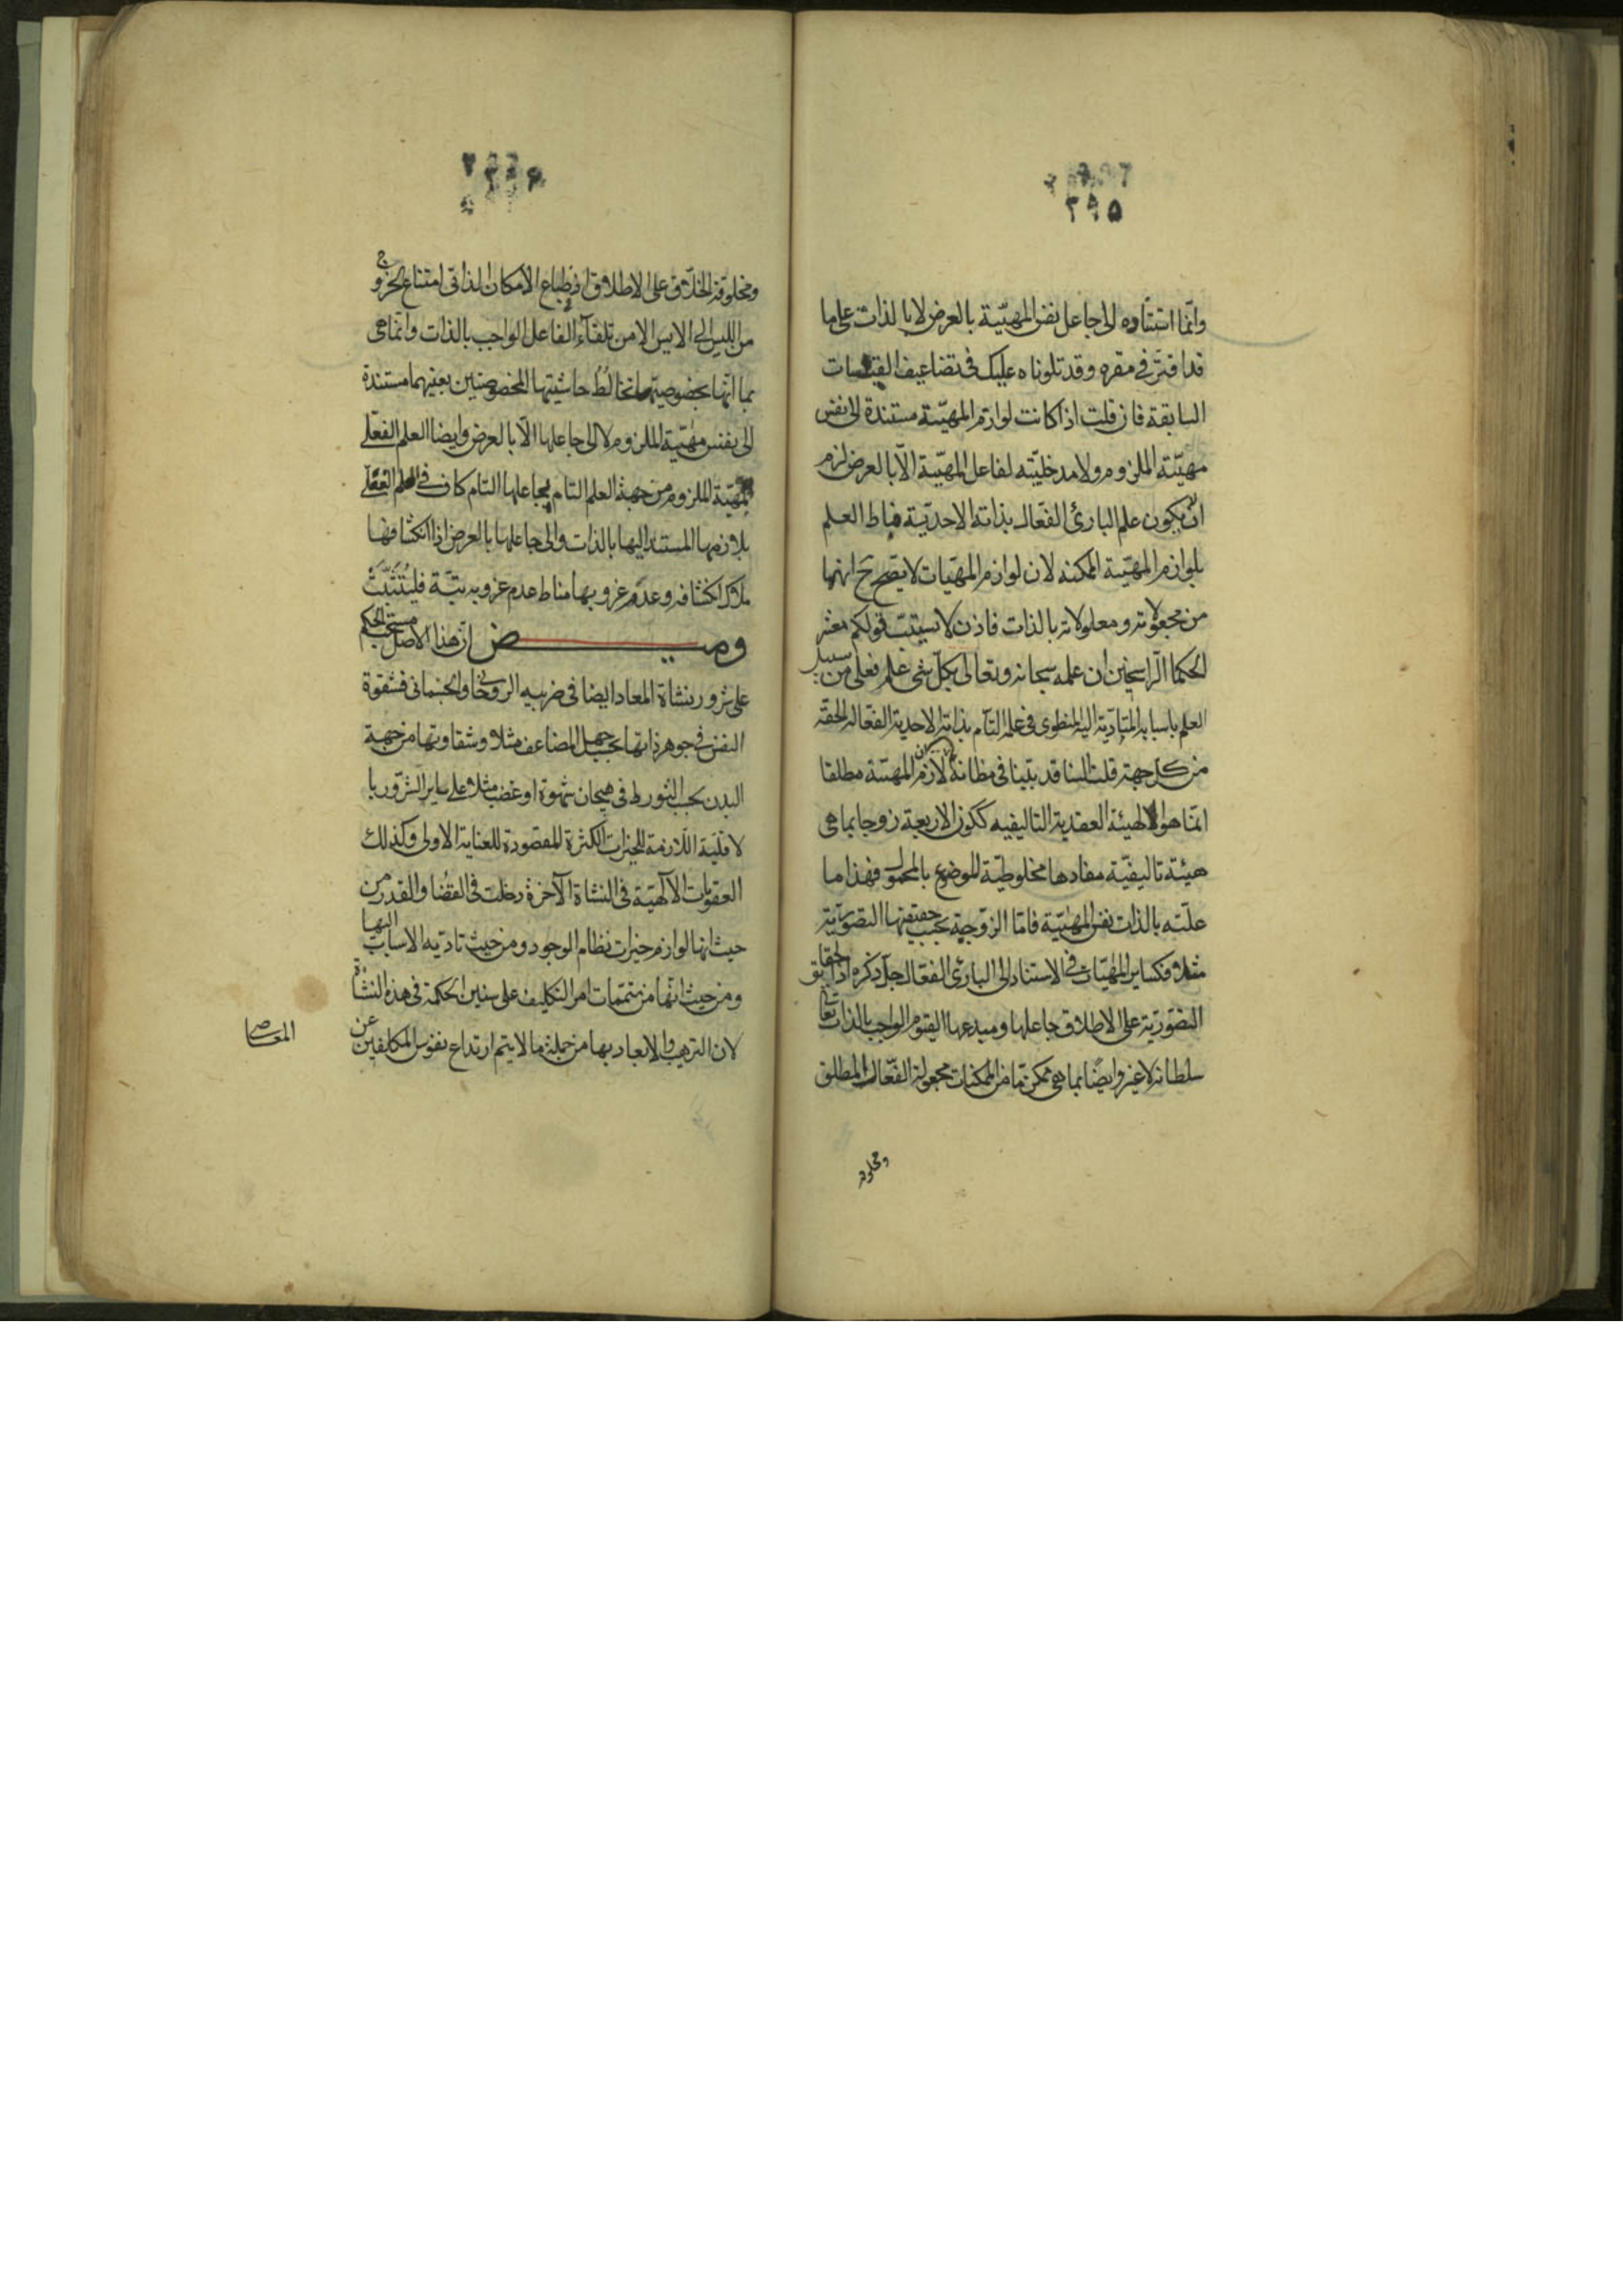 ٢٩٥
وانّما استناده الى جاعل نفس المهيّة بالعرض لا بالذات على ما
قد اقترّ فى مقره وقد تلوناه عليك فى تضاعيف القبسات
السابقة فان قلت اذا كانت لوازم المهيّة مستندة الى نفس
مهيّة الملزوم ولا مدخليّته لفاعل المهيّة الّا بالعرض لزم
ان لا يكون علم البارئ الفعّال بذاته الاحديّة مناط العلم
بلوازم المهيّة الممكنه لان لوازم المهيّات لا يصحّ ح انها
من مجعولاته ومعلولاته بالذات فاذن لا يستتبّ قولكم معشر
الحكما الرّاسخين ان علمه سبحانه وتعالى بكلّ شى علم فعلى من سبيل
العلم باسبابه المتاديّة اليه المنطوى فى علمه التآم بذاته الاحدية الفعّاله الحقة
من كل جهة قلت السنا قد بيّنا فى مظانه ان لازم المهيّة مطلقا
انما هو الهيئة العقدية التاليفيه ككون الاربعة زوجا بما هى
هيئة تاليفيّة مفادها مخلوطيّة الموضوع بالمحمول فهذا ما
علّته بالذات نفس المهيّة فامّا الزوجية بحسب حقيقتها التصوريّة
مثلا فكساير المهيّات فى الاستناد الى البارئ الفعّال جلّ ذكره اذ الحقايق
التصوّريّة على الاطلاق جاعلها ومبدعها القيّوم الواجب بالذات تعالى
سلطانه لا غير وايضًا بما هى ممكن ما من الممكنات مجعولة الفعّال المطلق
ومخلوقة
ومخلوقة الخلّاق على الاطلاق اذ فى طباع الامكان الذاتى امتناع الخروج
من الليس الى الايس الا من تلقآء الفاعل الواجب بالذات وانّما هى
بما انّها بخصوصيّتها تخالُطُ حاشيتيها المخصوصتين بعينهما مستندة
الى نفس مهيّة الملزوم لا الى جاعلها الّا بالعرض وايضا العلم الفعلى
بمهيّة الملزوم من جهة العلم التام بجاعلها التام كان فى العلم الفعلى
بلازمها المستند اليها بالذات والى جاعلها بالعرض اذا انكشافها
ملاك انكشافه وعدم عزوبها مناط عدم عزوبه بتّة فليُتَثَبَّتْ
ومـيـض ان هذا الاصل مستحبّ الحكم
على شرور نشاة المعاد ايضا فى ضربيه الروحانى والجسمانى فشقوة
النفس فى جوهر ذاتها بحسب الجهل المضاعف مثلا وشقاوتها من جهة
البدن بحسب التورط فى هيجان شهوة او غضب مثلا على ساير الشرور با
لاقليّة اللازمة للخيرات الكثيرة المقصودة للعناية الاولى وكذلك
العقوبات الآلهيّة فى النشاة الآخرة دخلت فى القضا والقدر من
حيث انها لوازم خيرات نظام الوجود ومن حيث تاديه الاسباب اليها
ومن حيث انّها من متممّات امر التكليف على سنين الحكمة فى هذه النشأة
لان الترهيب والايعاد بها من جملة ما لا يتم ارتداع نفوس المكلفين عن
المعاصى